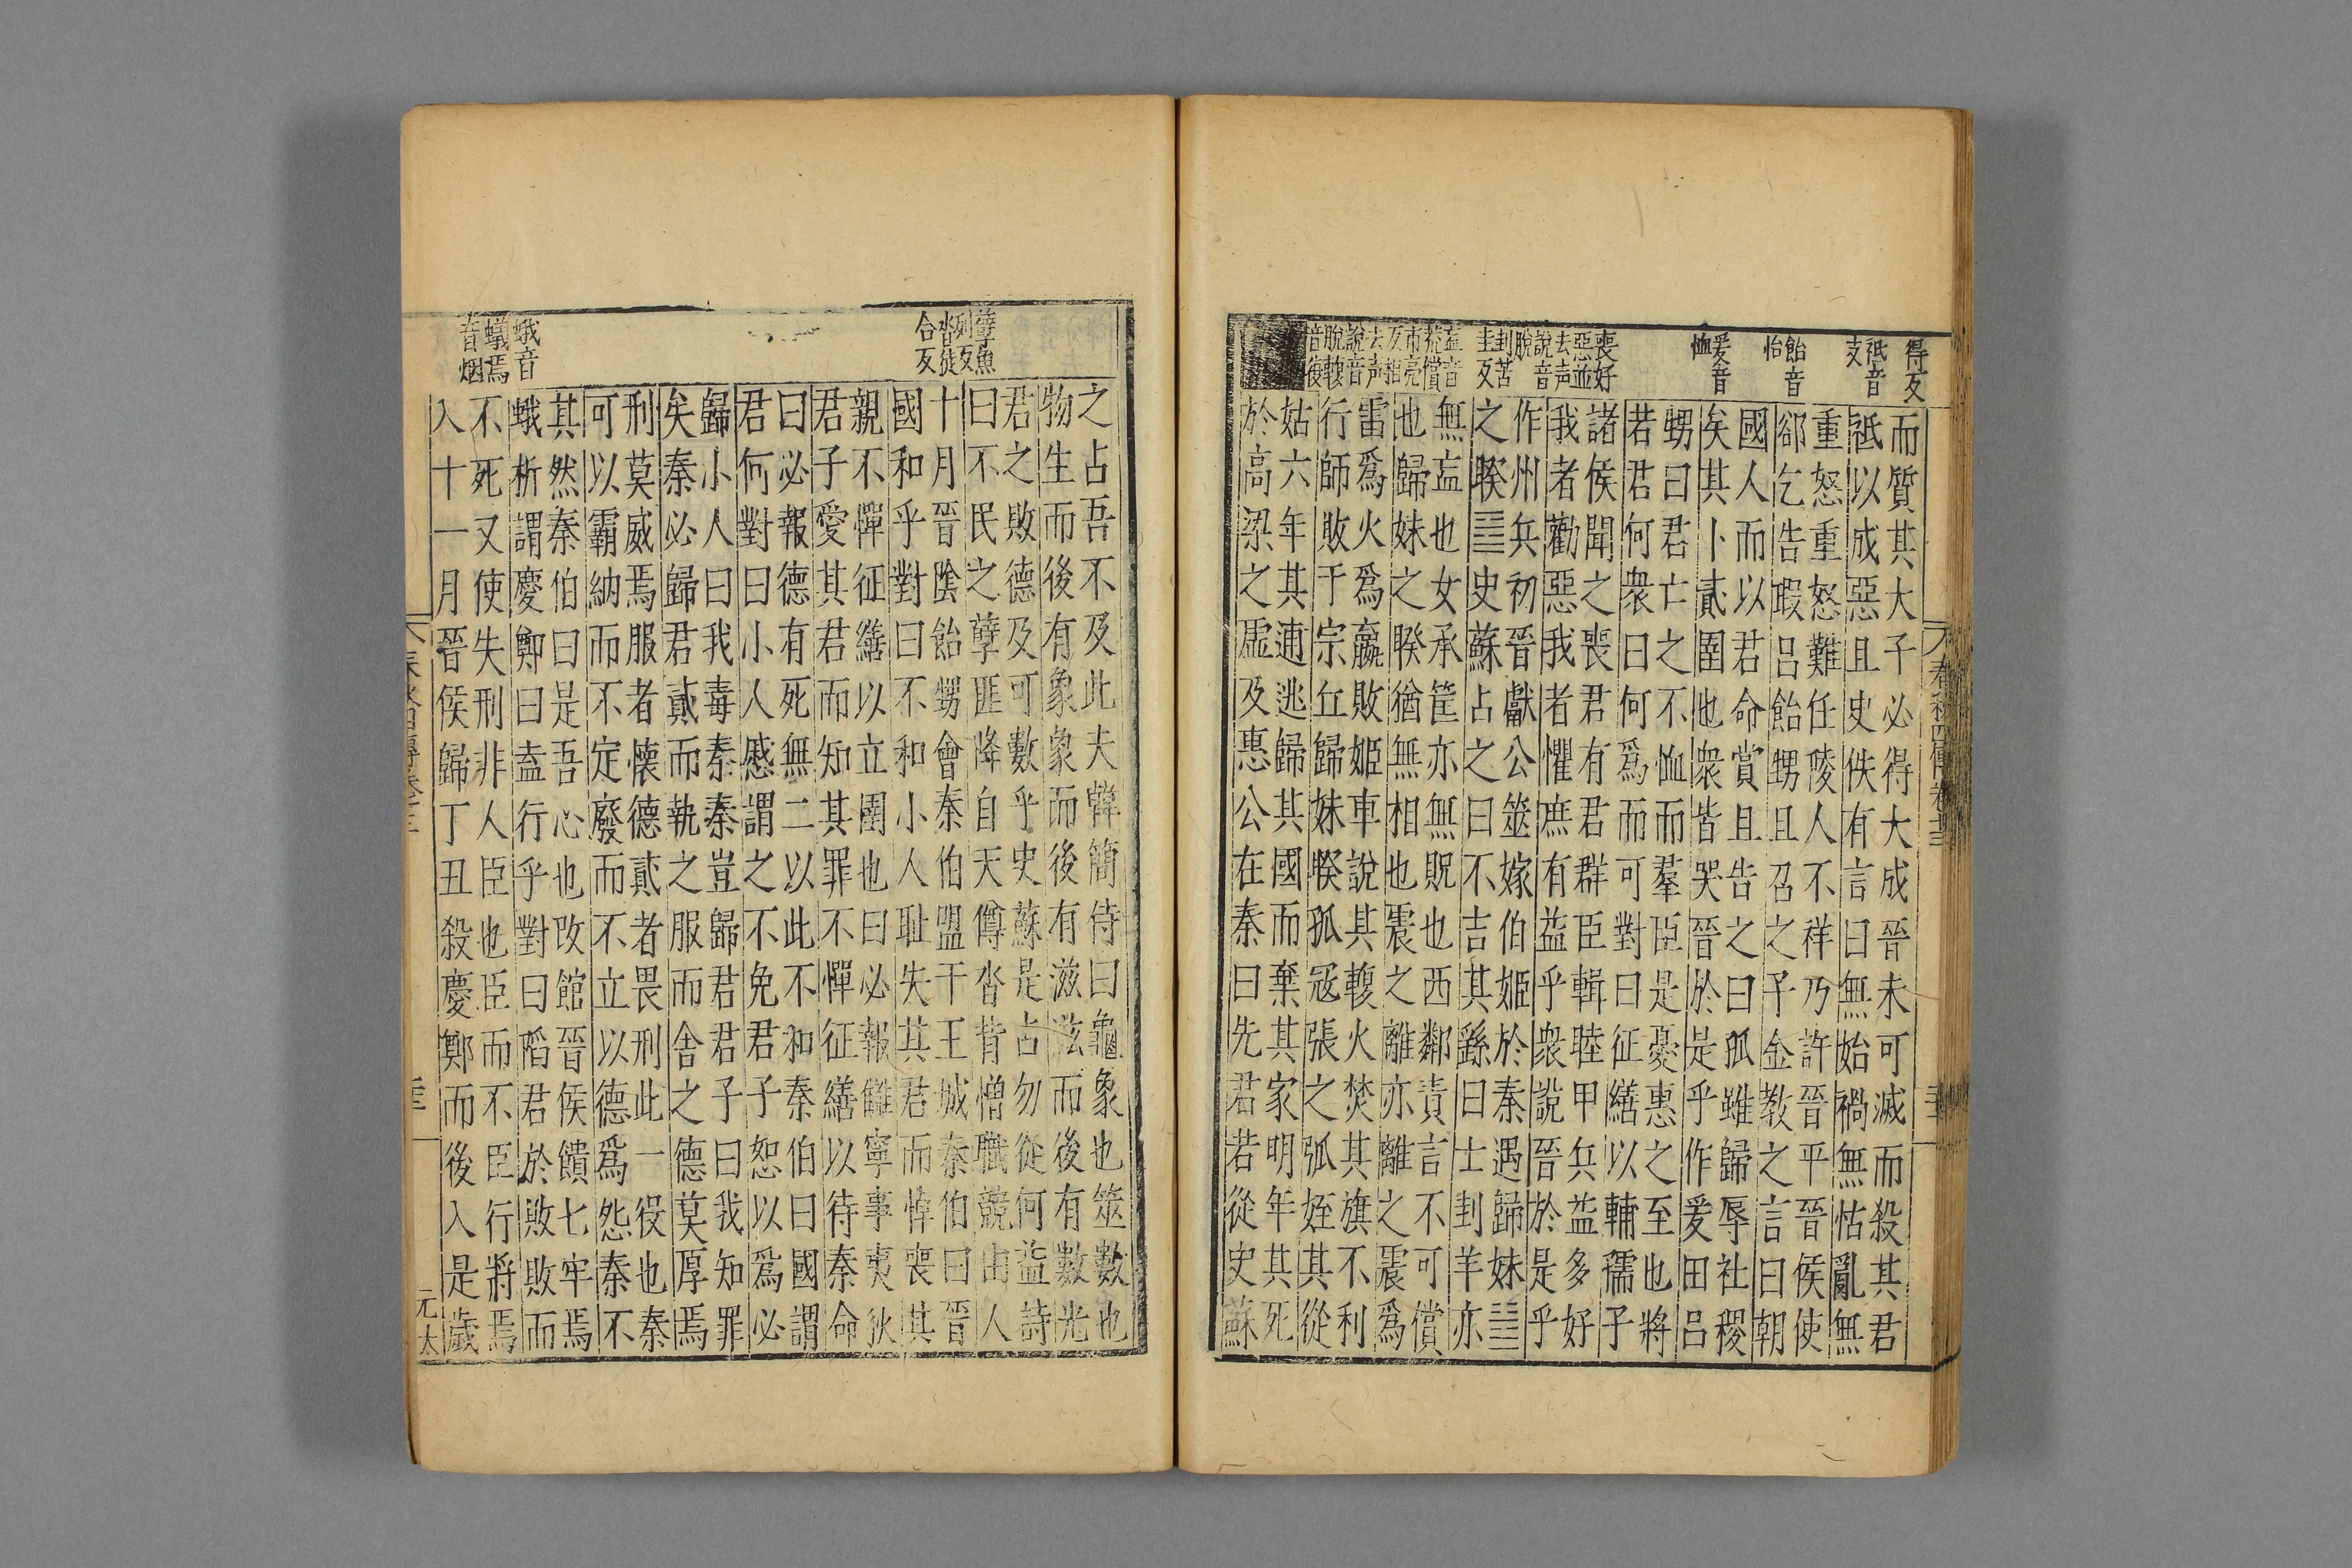 得反
祇音
支
飴音
怡
爰音
恤
喪好
惡並
去声
說音
脫
封苦
圭反
衁音
荒償
市亮
反相
去声
說音
脫輹
音復
而質其大子必得大成晉未可滅而殺其君
祗以成惡且史佚有言曰無始禍無怙亂無
重怒重怒難任陵人不祥乃許晉平晉侯使
郤乞告瑕呂飴甥且召之子金教之言曰朝
國人而以君命賞且告之曰孤雖歸辱社稷
矣其卜貳圉也衆皆哭晉於是乎作爰田呂
甥曰君亡之不恤而羣臣是憂惠之至也將
若君何衆曰何爲而可對曰征繕以輔孺子
諸侯聞之喪君有君群臣輯睦甲兵益多好
我者勸惡我者懼庶有益乎衆說晉於是乎
作州兵初晉獻公筮嫁伯姬於秦遇歸妹䷵
之睽䷥史蘇占之曰不吉其繇曰士刲羊亦
無衁也女承筐亦無貺也西鄰責言不可償
也歸妹之睽猶無相也震之離亦離之震爲
雷爲火爲嬴敗姬車說其輹火焚其旗不利
行師敗于宗丘歸妹睽孤冦張之弧姪其從
姑六年其逋逃歸其國而棄其家明年其死
於高梁之虛及惠公在秦曰先君若從史蘇
春秋四傳卷十三
孽魚
列反
沓徒
合反
蛾音
蟻焉
音烟
之占吾不及此夫韓簡侍曰龜象也筮數也
物生而後有象象而後有滋滋而後有數先
君之敗德及可數乎史蘇是占勿從何益詩
曰不民之孽匪降自天僔沓背憎職競由人
十月晉隂飴甥會秦伯盟于王城秦伯曰晉
國和乎對曰不和小人耻失其君而悼喪其
親不憚征繕以立圉也曰必報讎寧事夷狄
君子愛其君而知其罪不憚征繕以待秦命
曰必報德有死無二以此不和秦伯曰國謂
君何對曰小人慼謂之不免君子恕以爲必
歸小人曰我毒秦秦豈歸君君子曰我知罪
矣秦必歸君貳而執之服而舍之德莫厚焉
刑莫威焉服者懷德貳者畏刑此一役也秦
可以霸納而不定廢而不立以德爲怨秦不
其然秦伯曰是吾心也改館晉侯饋七牢焉
蛾析謂慶鄭曰盍行乎對曰䧟君於敗敗而
不死又使失刑非人臣也臣而不臣行將焉
入十一月晉侯歸丁丑殺慶鄭而後入是歲
元太